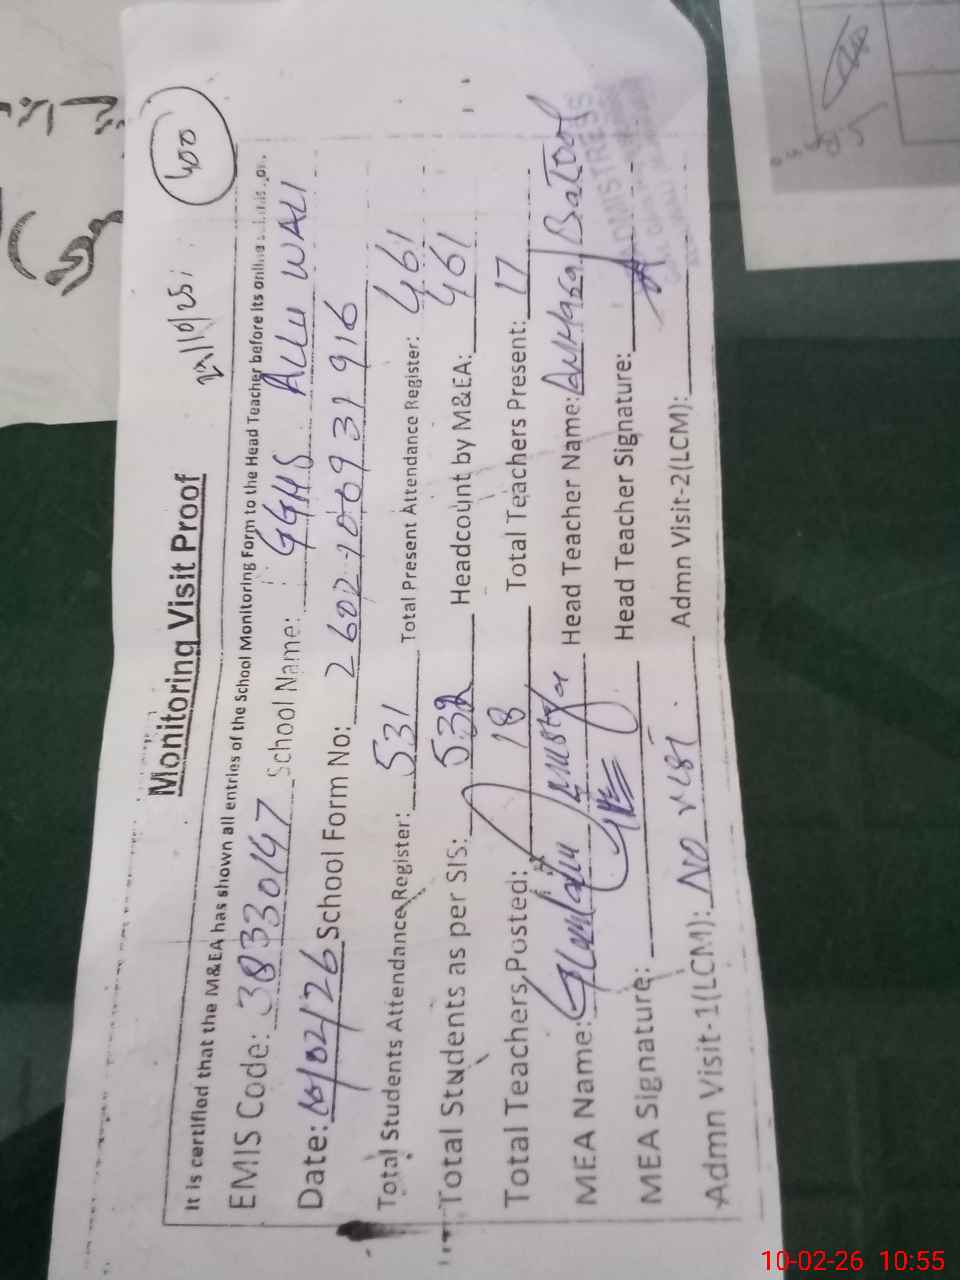 400
22/10/25
Monitoring Visit Proof
It is certified that the M&EA has shown all entries of the School Monitoring Form to the Head Teacher before its online
EMIS Code: 38330147 School Name: GGHS ALLU WALI
Date: 10/02/26 School Form No: 2602100931916
Total Students Attendance Register: 531 Total Present Attendance Register: 461
Total Students as per SIS: 532 Headcount by M&EA: 461
Total Teachers Posted: 18 Total Teachers Present: 17
MEA Name: Ghulam Head Teacher Name: Batool
MEA Signature: Head Teacher Signature:
Admn Visit-1(LCM): NO visit Admn Visit-2(LCM):
10-02-26 10:55